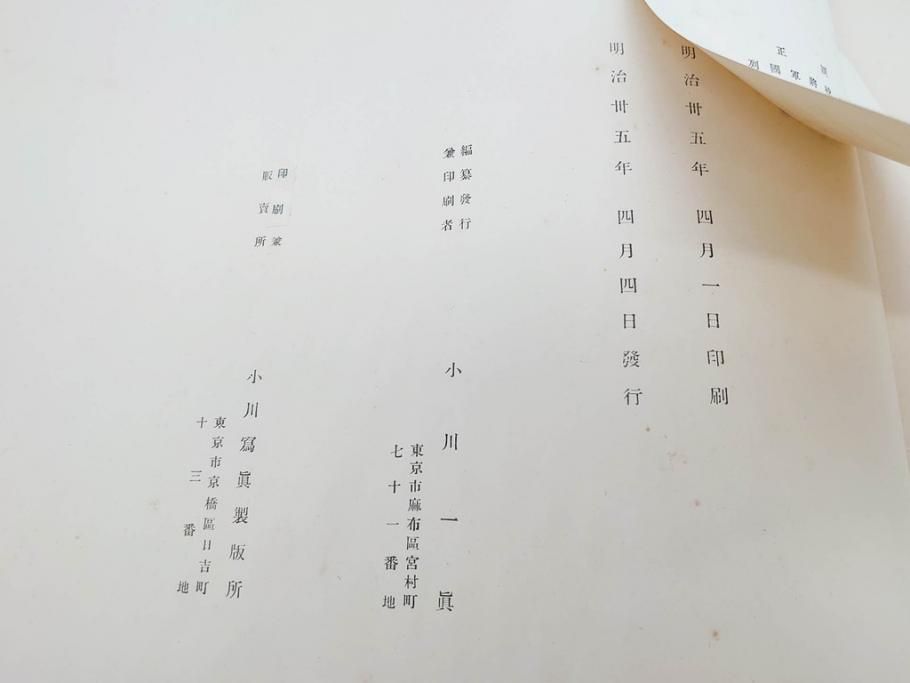 明治卅五年四月一日印刷
明治卅五年四月四日發行
編纂發行
兼印刷者
小川一眞
東京市麻布區宮村町
七十一番地
印刷兼
販賣所
小川寫眞製版所
東京市京橋區日吉町
十三番地